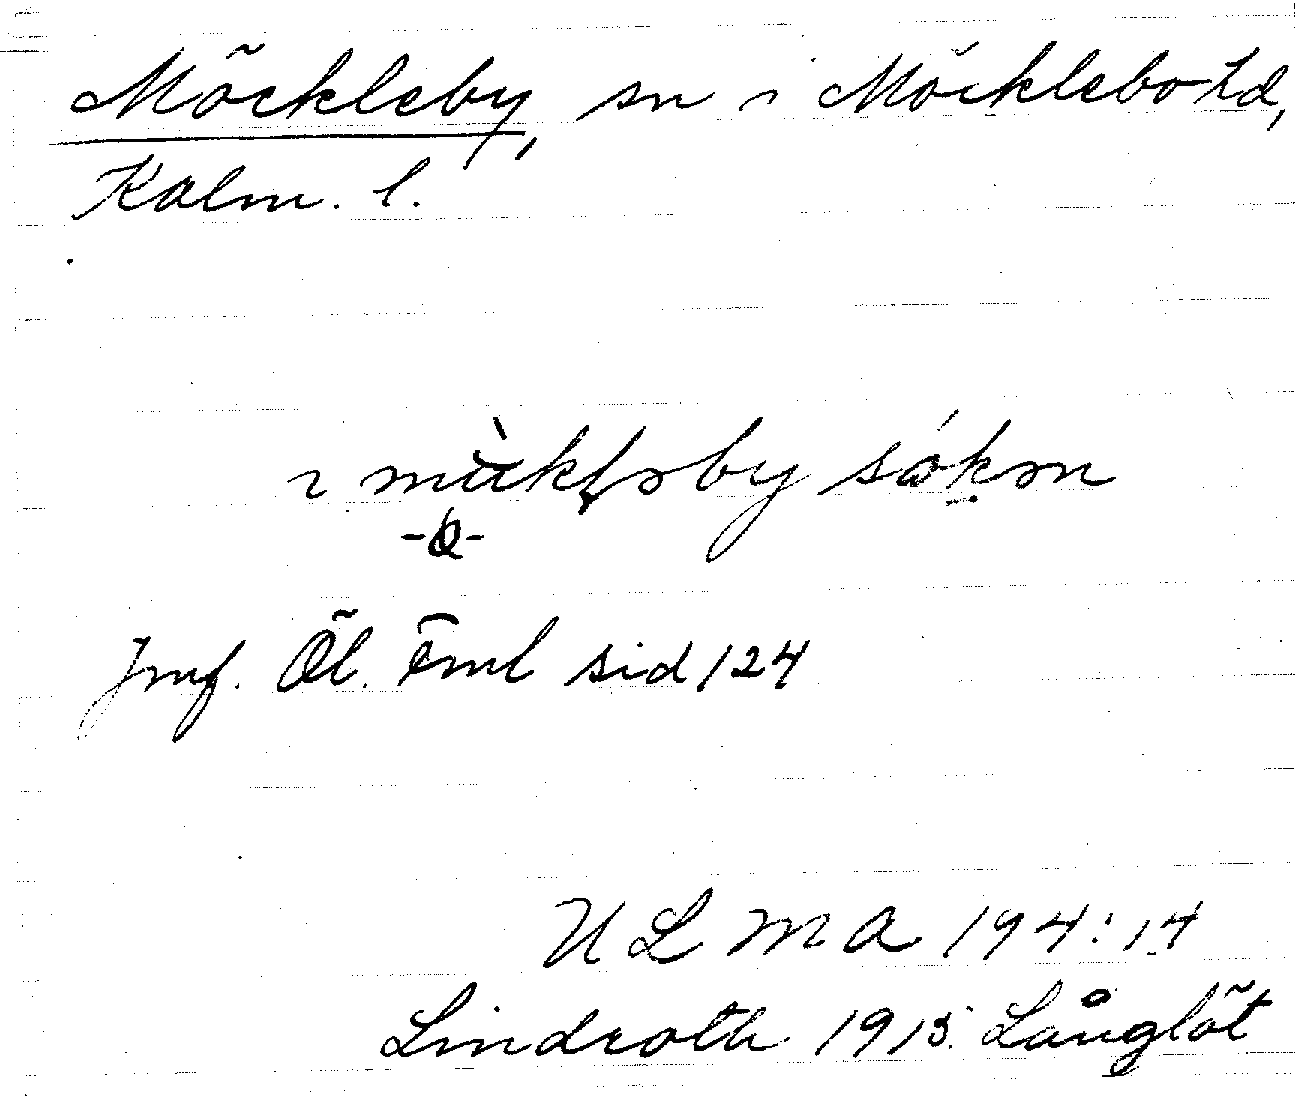 Möckleby, sn i Möcklebo hd,
Kalm. l.
i mùkləby sǿkən
Jmf. Öl. Fml sid 124
U L M A 194:14
Lindroth 1915. Långlöt